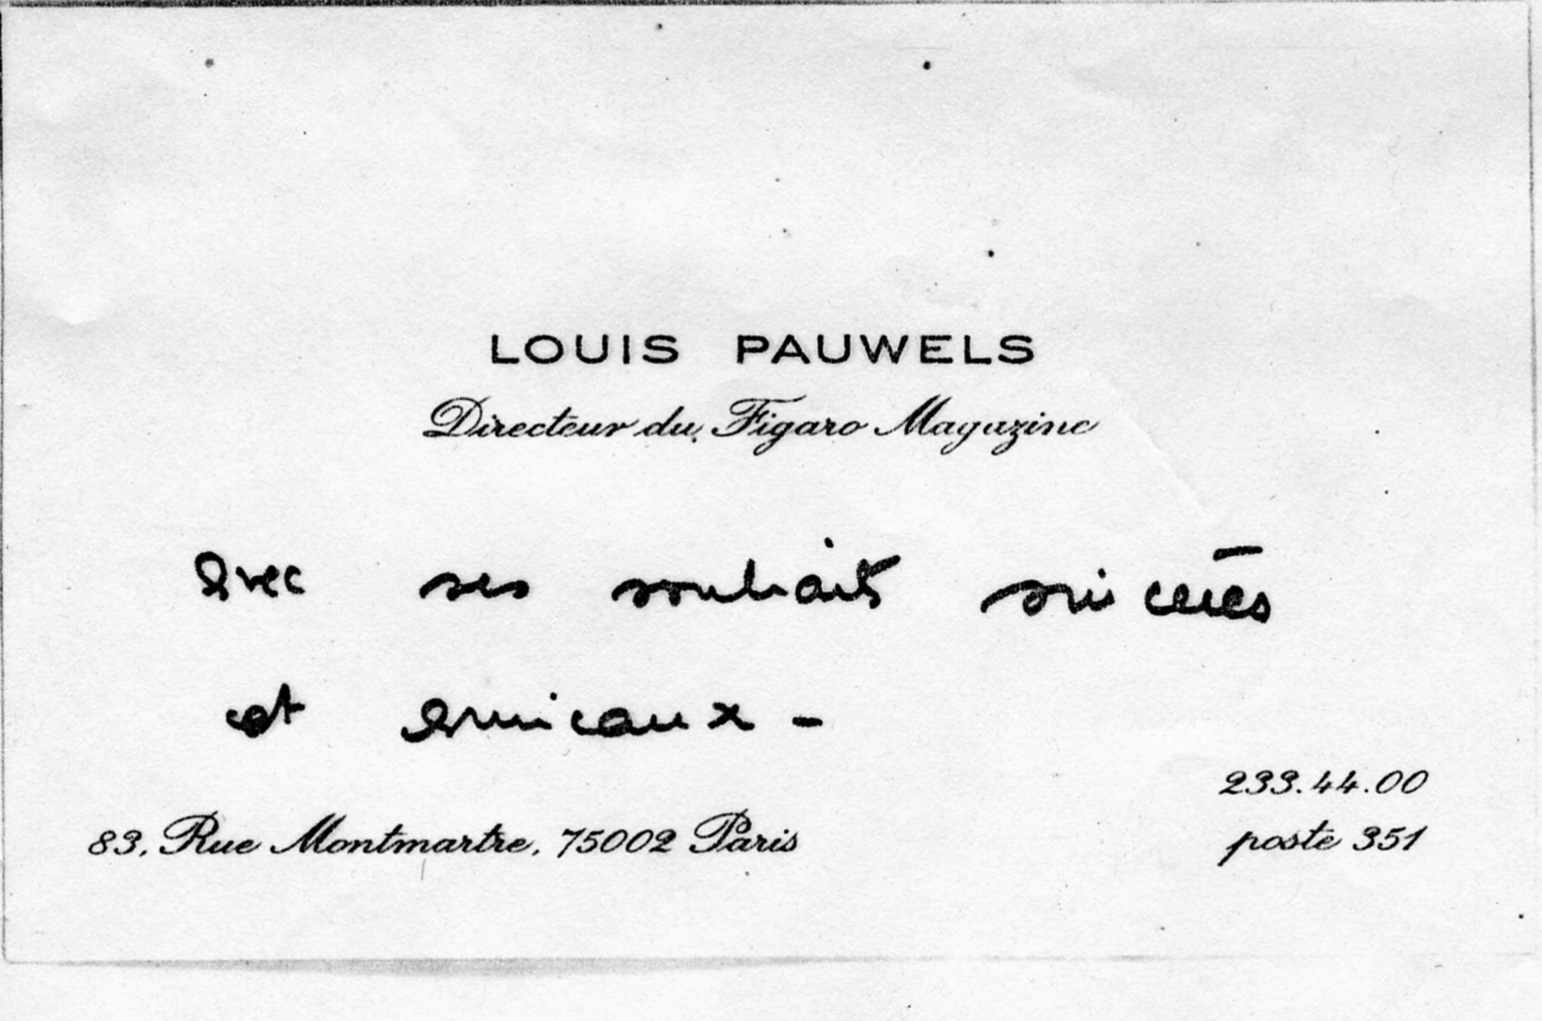 LOUIS PAUWELS
Directeur du Figaro Magazine
avec ses souhaits sincères
et amicaux -
233.44.00
83, Rue Montmartre, 75002 Paris
poste 351